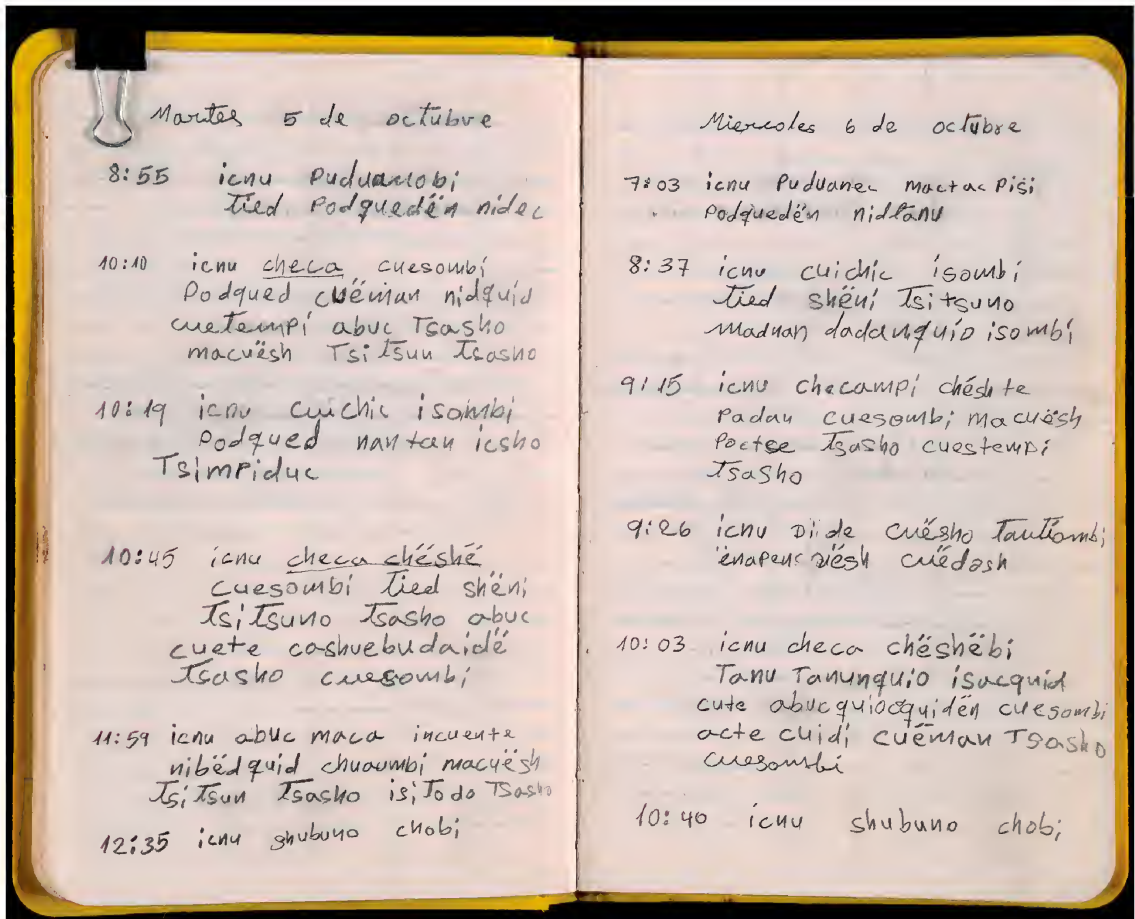 Martes 5 de octubre
8:55 icnu Puduanobi
tied Podquedën nidec
10:10 icnu checa cuesombi
Podqued cuëman nidquid
cuetempi abuc Tsasho
macuësh Tsitsun tsasho
10:19 icnu cuichic isombi
Podqued nantan icsho
Tsimpiduc
10:45 icnu checa chëshë
cuesombi tied shëni
Tsitsuno Tsasho abuc
cuete coshuebudaidë
Tsasho cuesombi
11:59 icnu abuc maca incuente
nibëdquid chuaumbi macuësh
Tsitsun Tsasho isitodo Tsasho
12:35 icnu shubuno chobi
Miercoles 6 de octubre
7:03 icnu Puduanec mactac Pisi
Podquedën nidtanu
8:37 icnu cuichic isombi
tied shëni Tsitsuno
madnan dadanquio isombi
9:15 icnu checampi chështe
Padan cuesombi macuësh
Poctse Tsasho cuestempi
Tsasho
9:26 icnu Diide cuësho Tautiambi
cuëdash
10:03 icnu checa chëshëbi
Tanu Tanunquio isacquid
cute abucquiocquidën cuesombi
acte cuidi cuëman Tsasho
cuesombi
10:40 icnu shubuno chobi